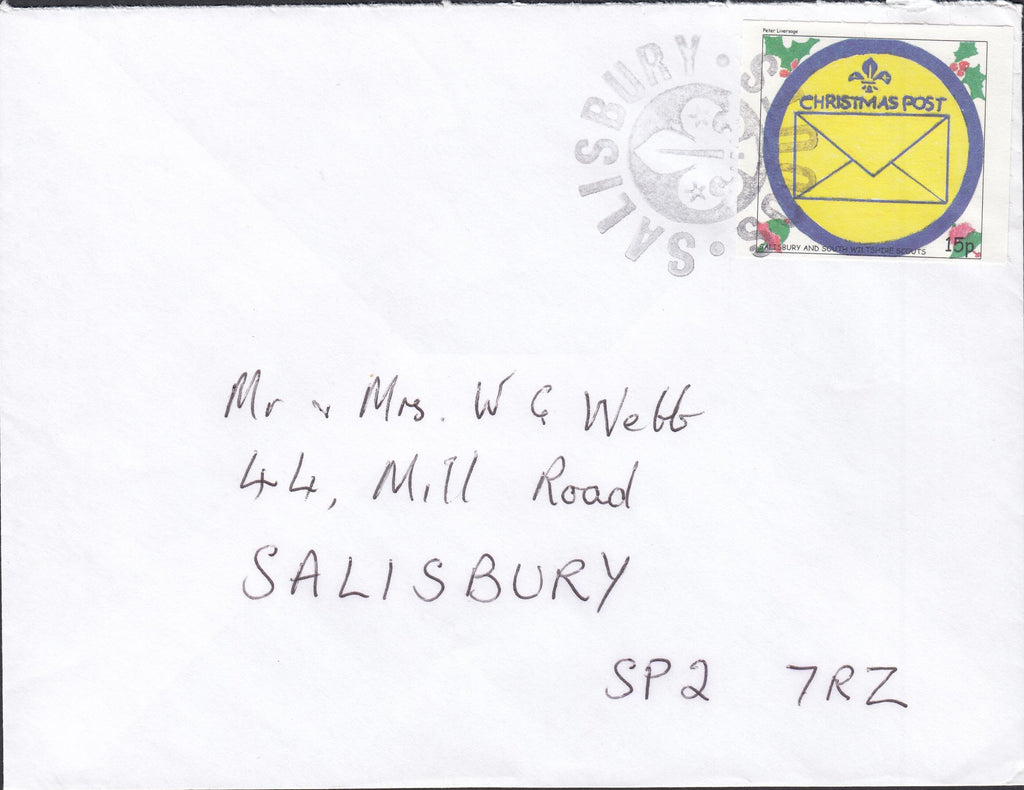 Peter Liversage
CHRISTMAS POST
SALISBURY AND SOUTH WILTSHIRE SCOUTS
15p
SALISBURY · SCOUTS ·
Mr & Mrs. W G Webb
44, Mill Road
SALISBURY
SP2 7RZ